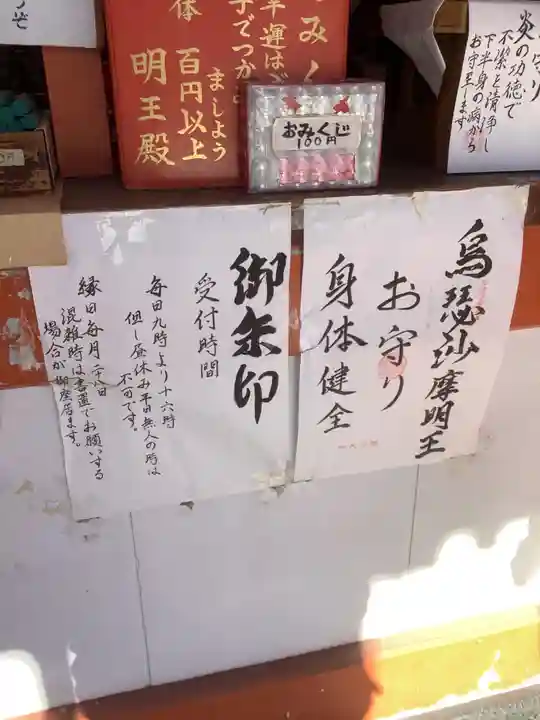 炎の功徳で
不潔を清浄し
下半身の病から
お守り
お守玉します
みく
幸運は
子でつか
ましょう
百円以上
体
明王殿
おみくじ
100円
烏瑟沙摩明王
お守り
身体健全
御朱印
受付時間
毎日九時より十六時
但し昼休み平日無人の時は
不可です。
縁日毎月二十八日
混雑時は書置でお願いする
場合が御座居ます。